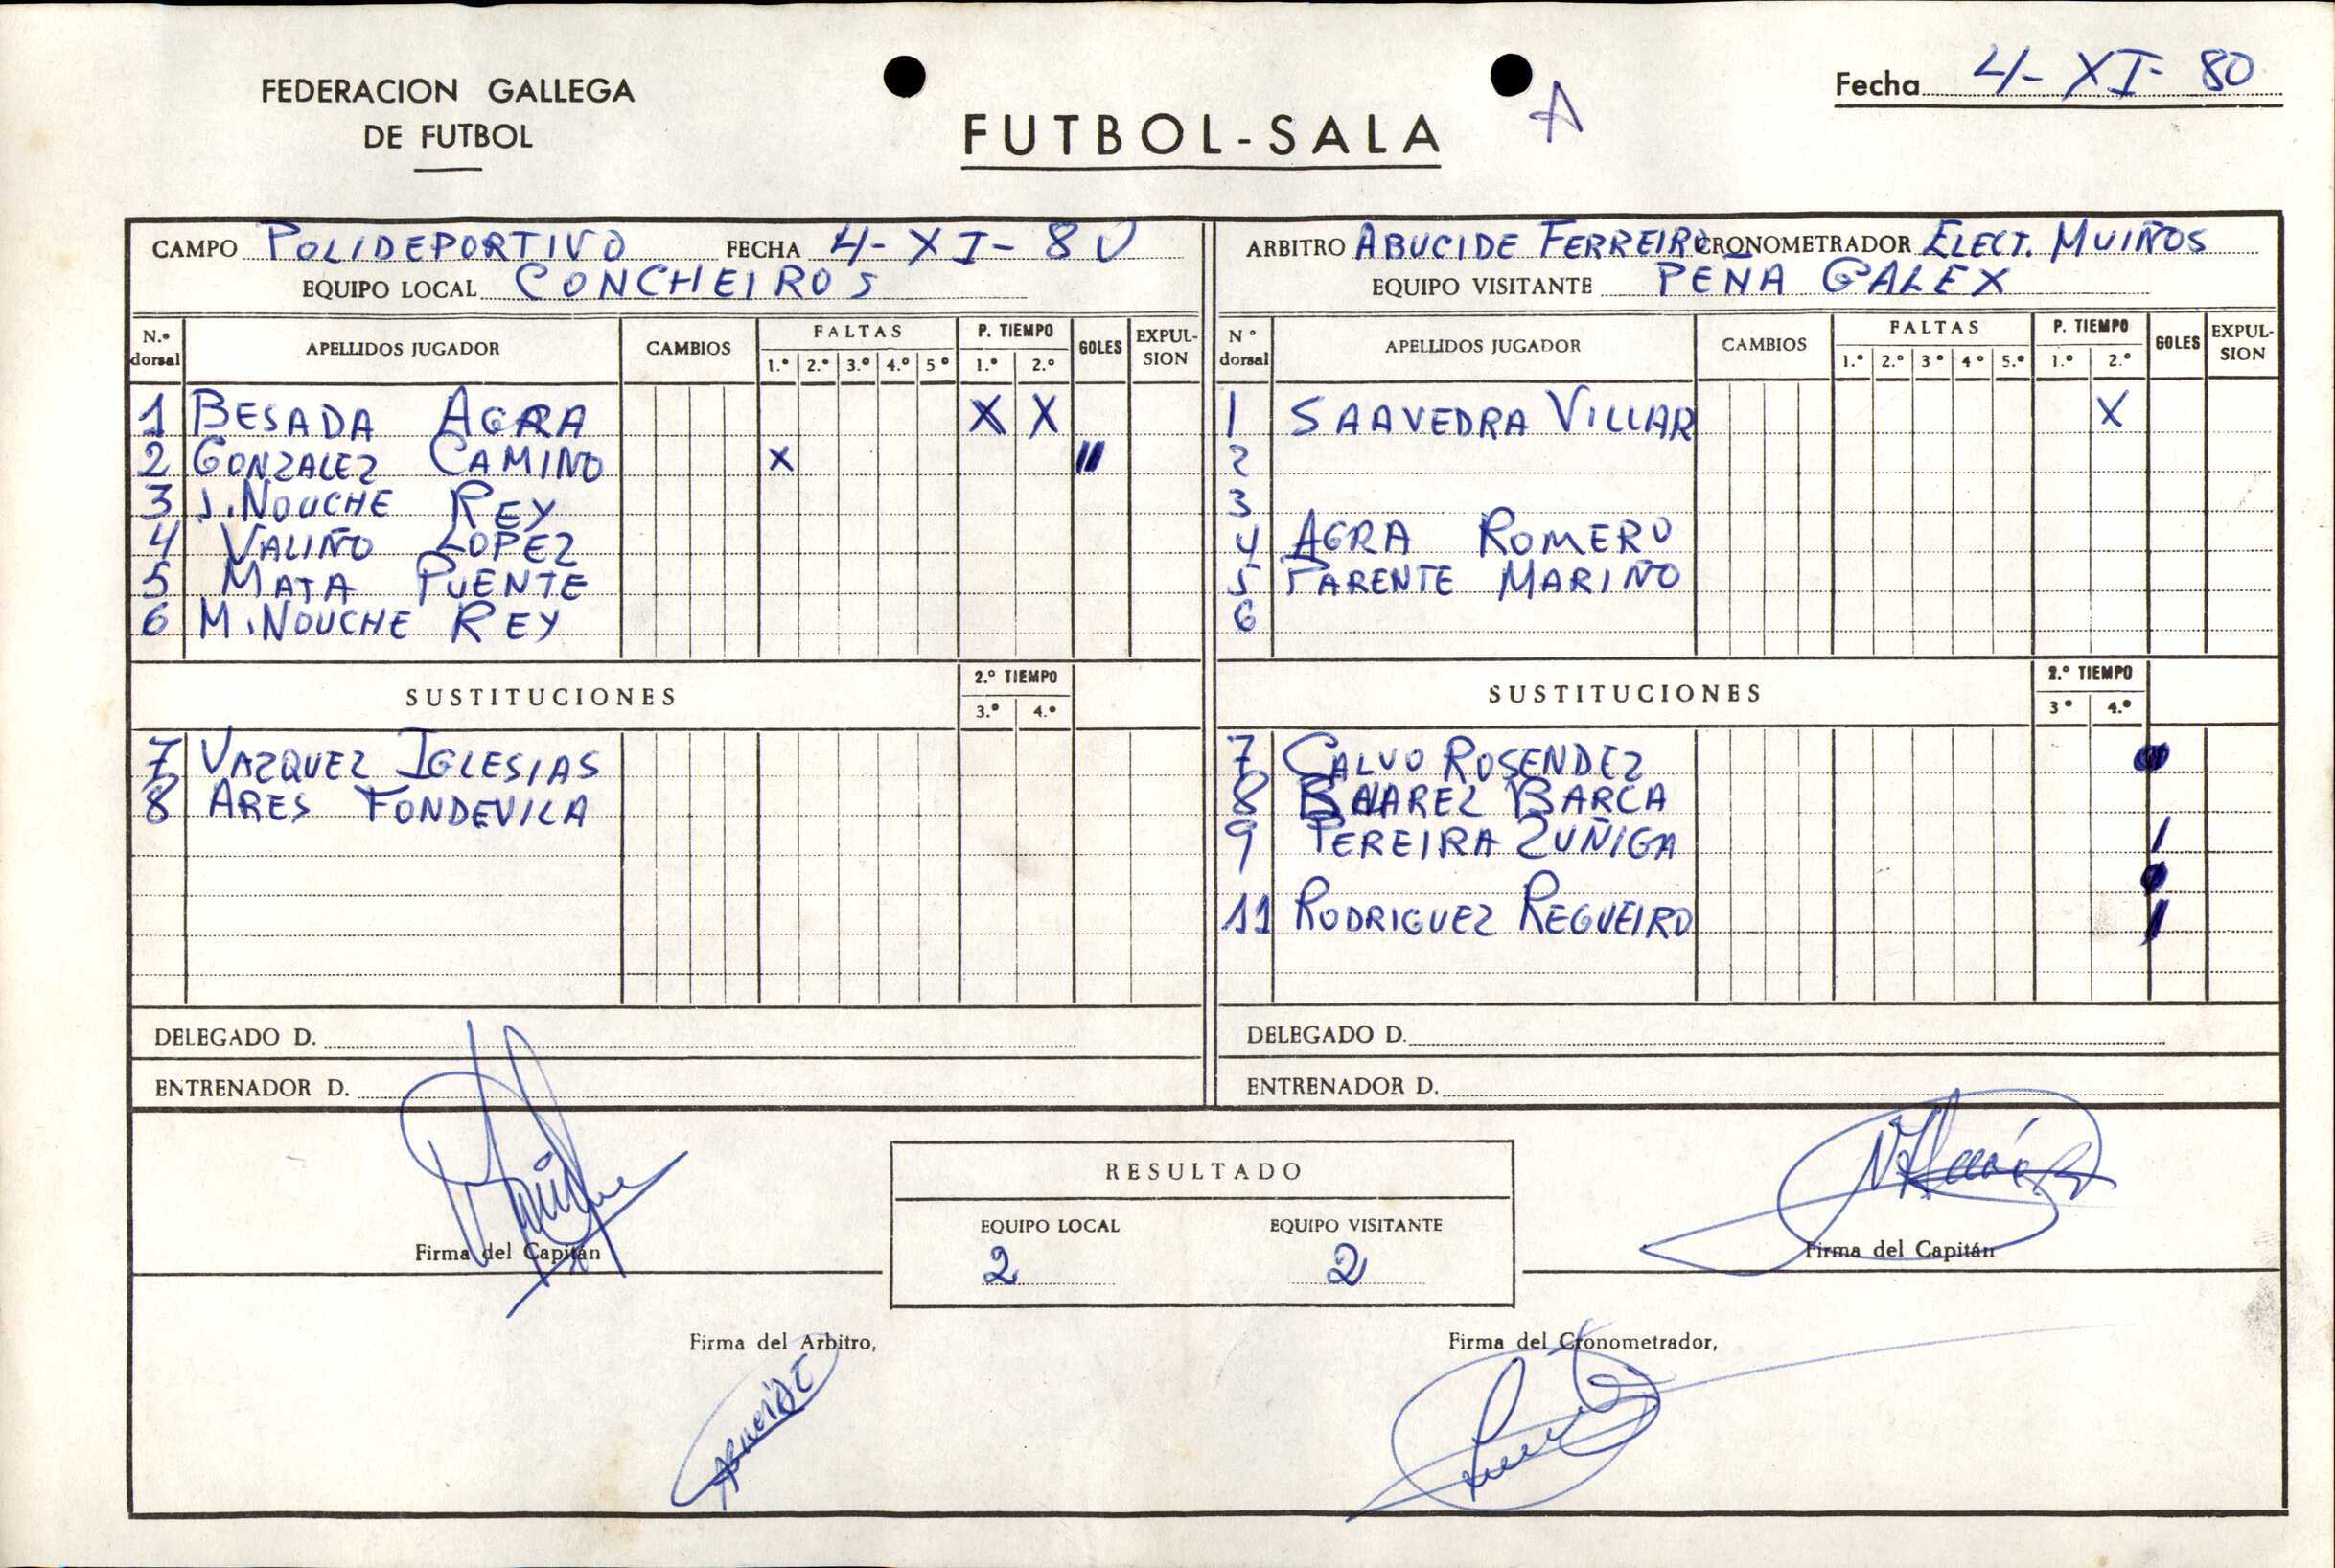 FEDERACION GALLEGA
DE FUTBOL
FUTBOL-SALA
A
Fecha 4-XI-80
CAMPO POLIDEPORTIVO FECHA 4-XI-80
EQUIPO LOCAL CONCHEIROS
N.º dorsal APELLIDOS JUGADOR CAMBIOS FALTAS 1.º 2.º 3.º 4.º 5º P. TIEMPO 1.º 2.º GOLES EXPUL-SION
1 BESADA AGRA X X
2 GONZALEZ CAMINO X II
3 J. NOUCHE REY
4 VALIÑO LOPEZ
5 MATA PUENTE
6 M. NOUCHE REY
SUSTITUCIONES 2.º TIEMPO 3.º 4.º
7 VAZQUEZ IGLESIAS
8 ARES FONDEVILA
DELEGADO D.
ENTRENADOR D.
ARBITRO ABUCIDE FERREIRO CRONOMETRADOR ELECT. MUIÑOS
EQUIPO VISITANTE PEÑA GALEX
Nº dorsal APELLIDOS JUGADOR CAMBIOS FALTAS 1.º 2.º 3º 4º 5.º P. TIEMPO 1.º 2.º GOLES EXPUL-SION
1 SAAVEDRA VILLAR X
2
3
4 AGRA ROMERO
5 PARENTE MARIÑO
6
SUSTITUCIONES 2.º TIEMPO 3º 4.º
7 CALVO ROSENDEZ
8 BARCA
9 PEREIRA ZUÑIGA I
11 RODRIGUEZ REGUEIRO I
DELEGADO D.
ENTRENADOR D.
RESULTADO
EQUIPO LOCAL EQUIPO VISITANTE
2 2
Firma del Capitán
Firma del Capitán
Firma del Arbitro,
Firma del Cronometrador,